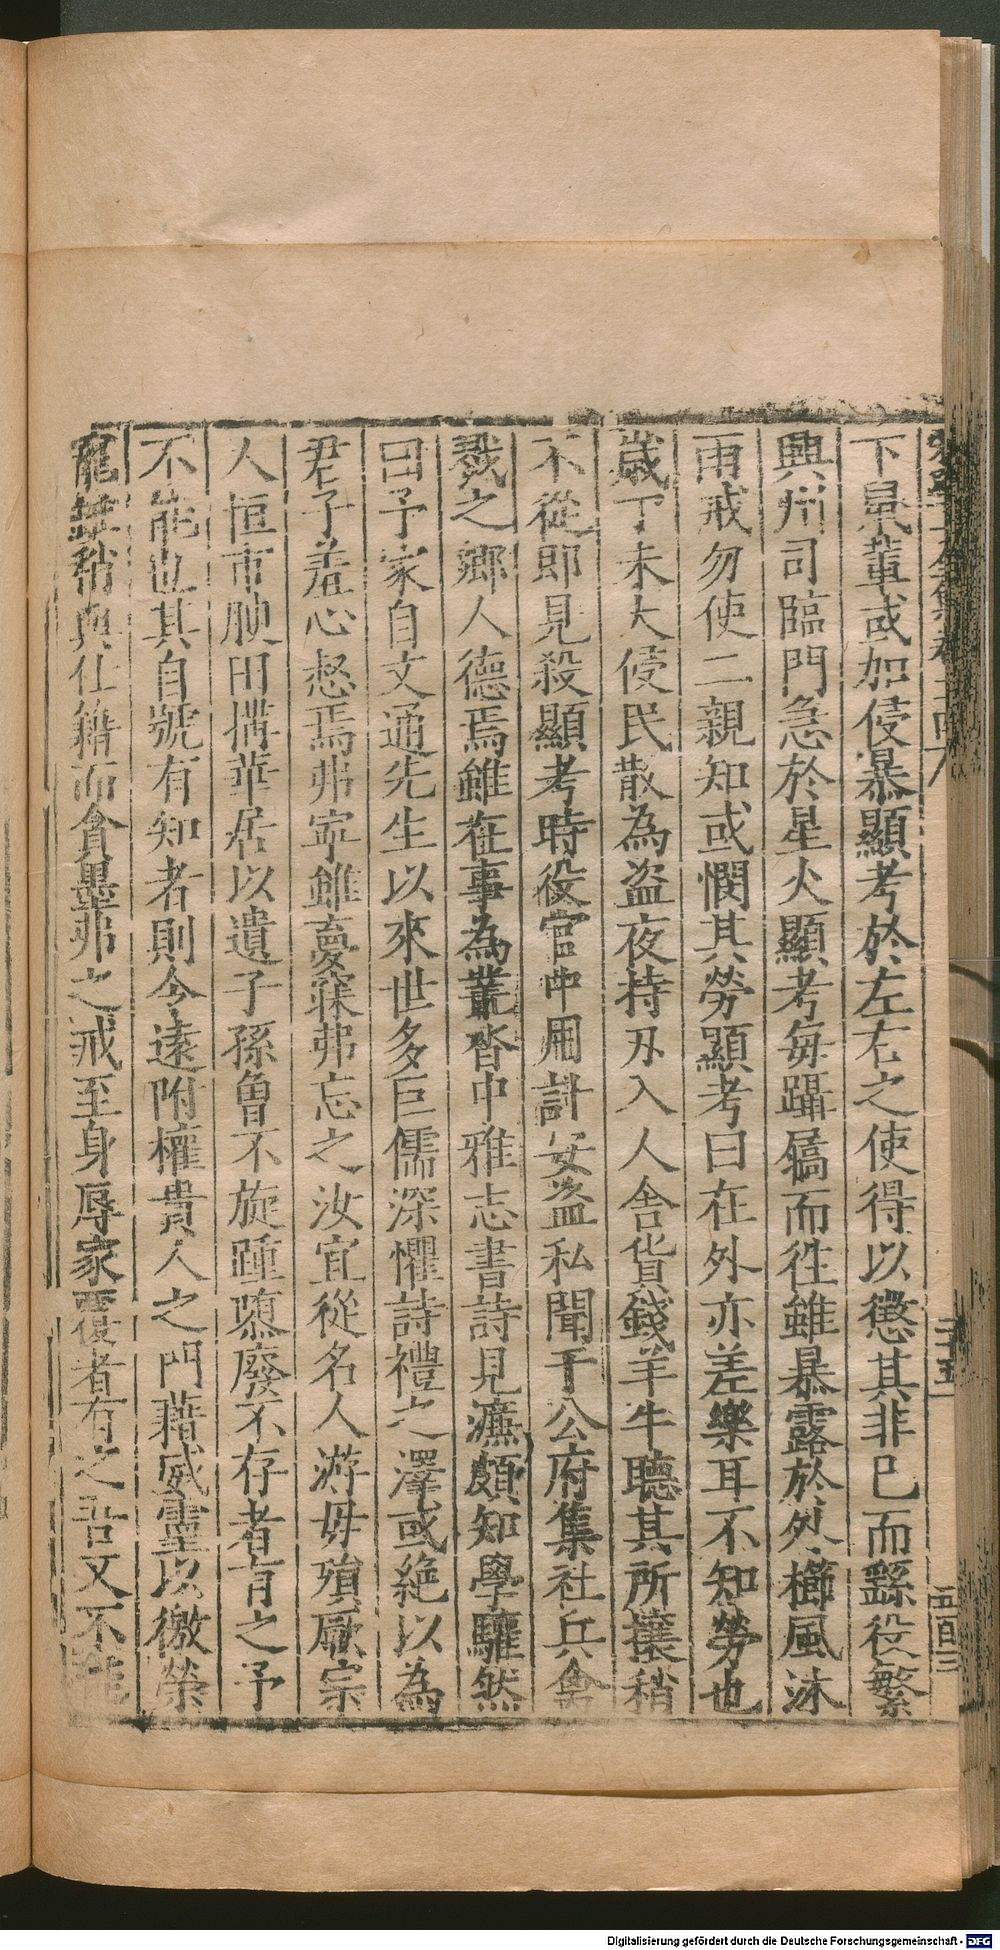 下臬輩或加侵暴顯考於左右之使得以懲其非已而繇役繁
興州司臨門急於星火顯考每躡屩而徃雖暴露於外櫛風沐
雨戒勿使二親知或憫其勞顯考曰在外亦差樂耳不知勞也
歲丁未大侵民散為盜夜持刃入人舍貨錢羊牛聽其所攘稍
不從即見殺顯考時役官中用計安盜私聞于公府集社兵禽
戮之鄉人德焉雖在事為叢沓中雅志書詩見濂頗知學驩然
曰予家自文通先生以來世多巨儒深懼詩禮之澤或絶以為
君子羞心惄焉弗寧雖夢寐弗忘之汝宜從名人游毋殞厥宗
人恒市腴田搆華居以遺子孫魯不旋踵隳廢不存者有之予
不能也其自號有知者則令遠附權貴人之門藉威靈以徼榮
寵姓稍與仕籍而貪墨弗之戒至身辱家覆者有之吾又不能
二十五
五百三
Digitalisierung gefördert durch die Deutsche Forschungsgemeinschaft - DFG